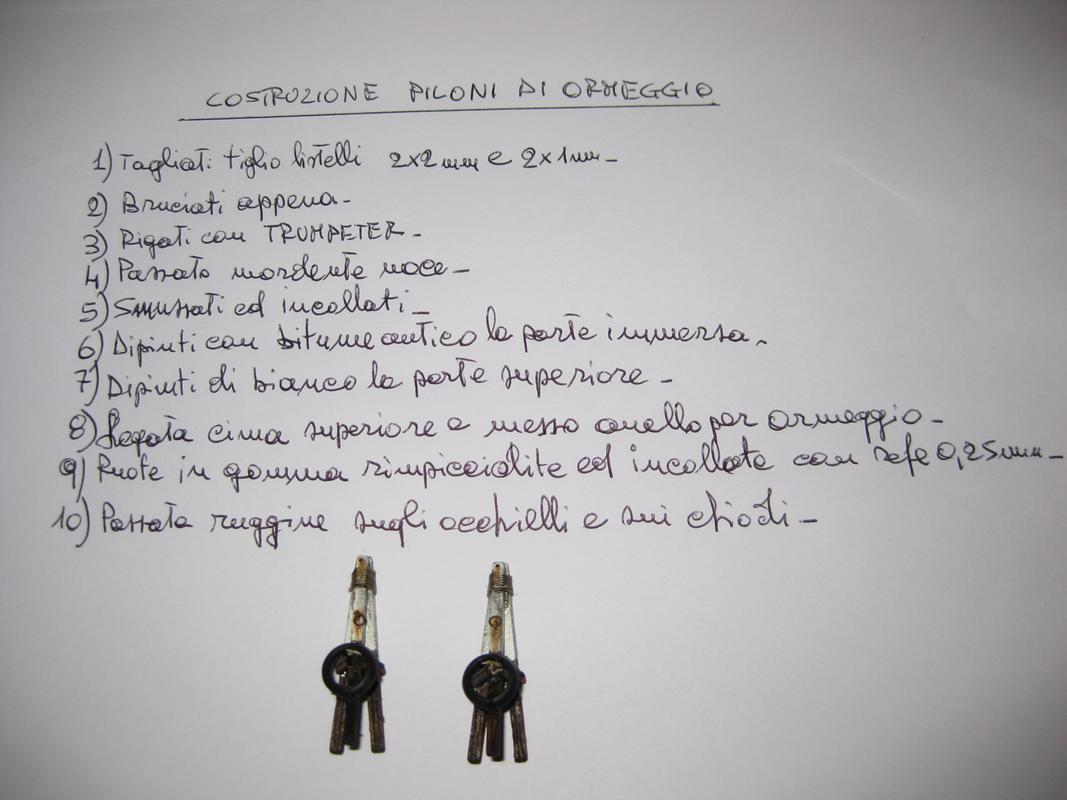 COSTRUZIONE PILONI DI ORMEGGIO
1) Tagliati tiglio listelli 2x2mm e 2x1mm-
2) Bruciati appena-
3) Rigati con TRUMPETER-
4) Passato mordente noce-
5) Smussati ed incollati-
6) Dipinti con bitume antico la parte immersa.
7) Dipinti di bianco la parte superiore-
8) Legata cima superiore e messo anello per ormeggio-
9) Ruote in gomma rimpicciolite ed incollate con refe 0,25mm-
10) Passata ruggine sugli occhielli e sui chiodi-